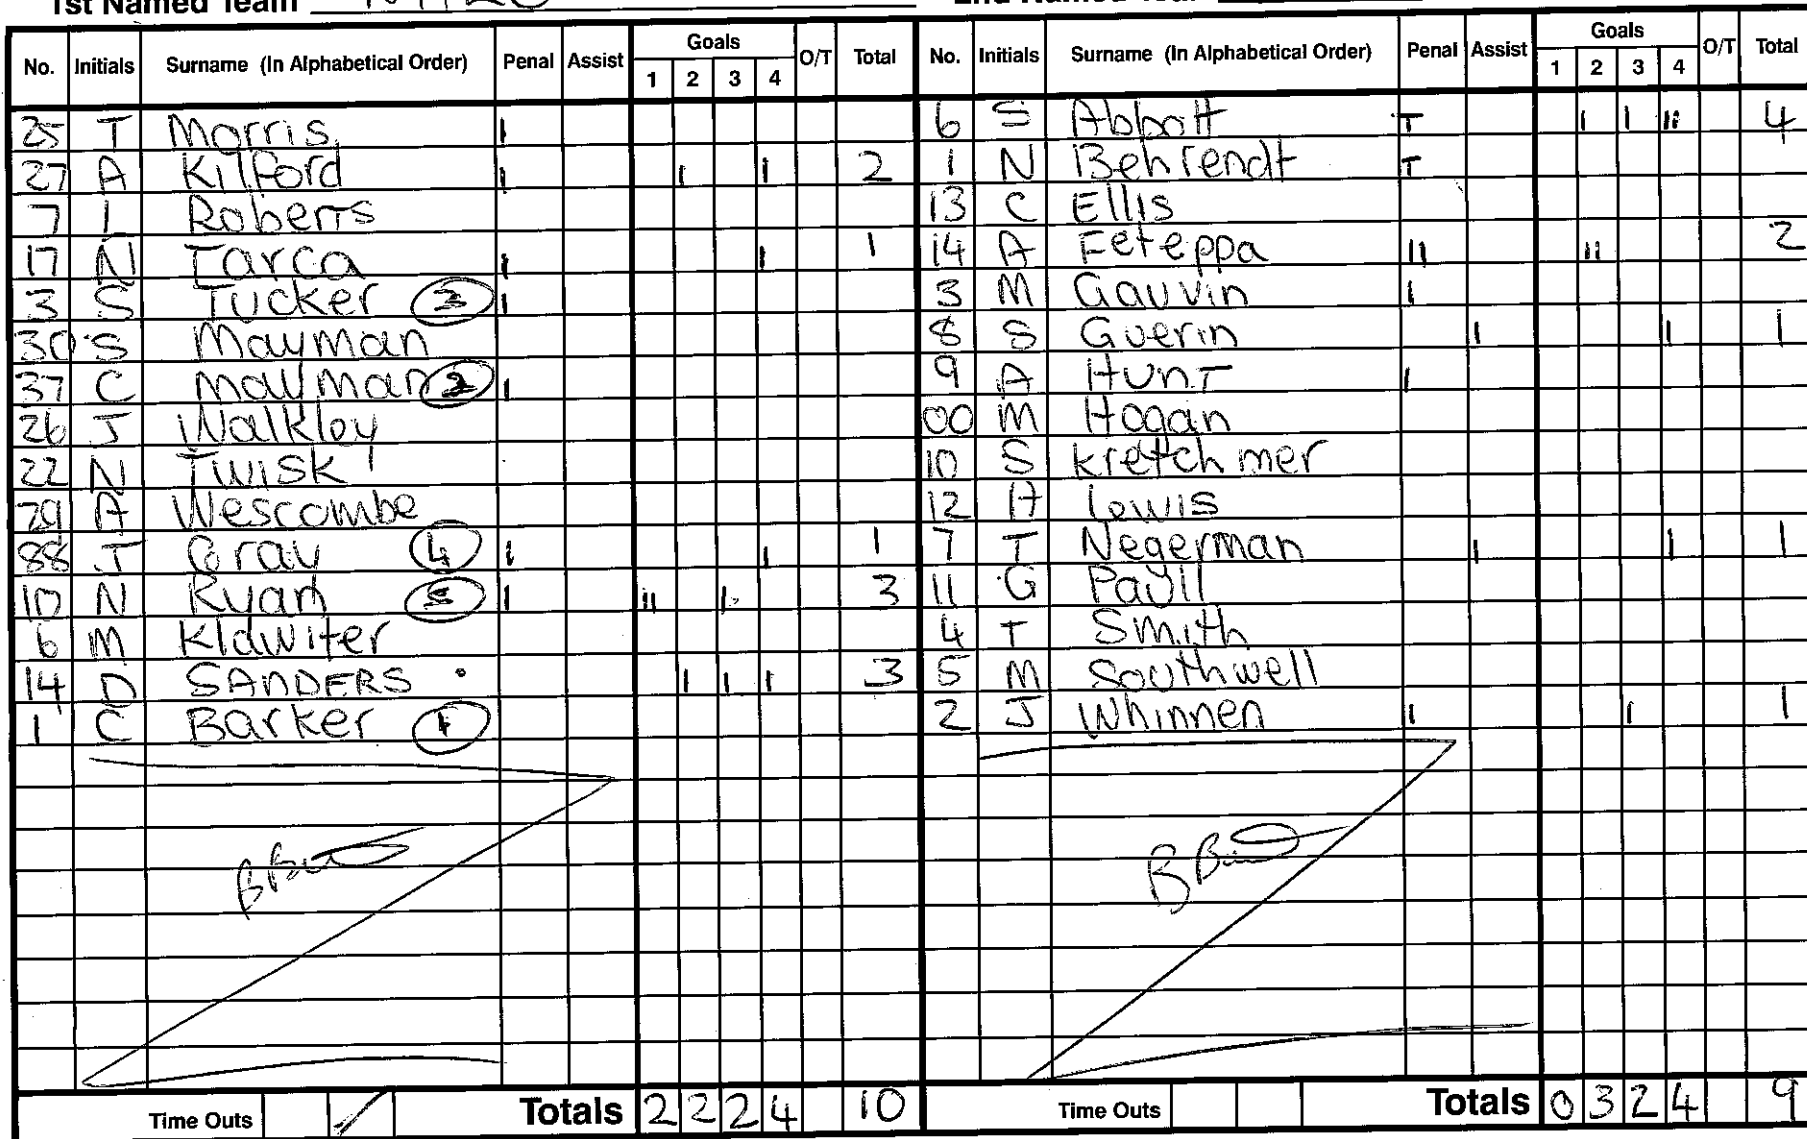 1st Named Team
No. Initials Surname (In Alphabetical Order) Penal Assist Goals 1 2 3 4 O/T Total
25 T Morris I
27 A Kilford I I I 2
7 I Roberts
17 N Tarca I I 1
3 S Tucker 3 I
30 S Mayman
37 C Mayman 2 I
26 J Walkley
22 N Twisk
29 A Wescombe
88 J Gray 4 I I 1
10 N Ryan 5 I II I 3
6 M Klawiter
14 D SANDERS I I I 3
1 C Barker 1
Time Outs / Totals 2 2 2 4 10
No. Initials Surname (In Alphabetical Order) Penal Assist Goals 1 2 3 4 O/T Total
6 S Abbott T I I II 4
1 N Behrendt T
13 C Ellis
14 A Feteppa II II 2
3 M Gauvin I
8 S Guerin I I 1
9 A Hunt I
00 M Hogan
10 S Kretchmer
12 A Lewis
7 T Negerman I I 1
11 G Payil
4 T Smith
5 M Southwell
2 J Whinnen I I 1
Time Outs Totals 0 3 2 4 9